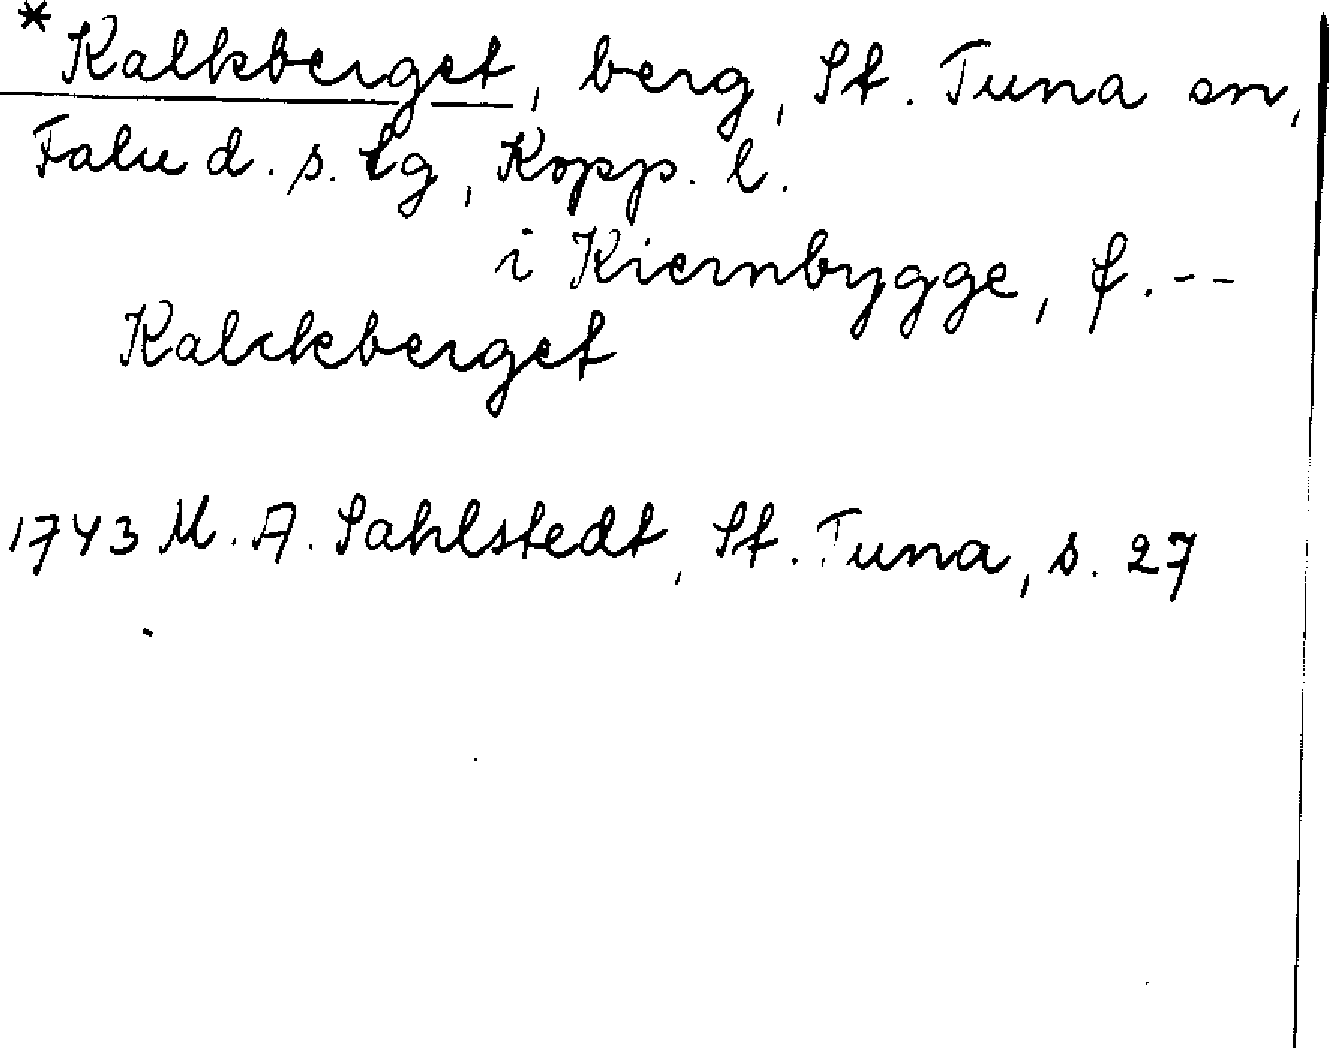 *Kalkberget, berg, St. Tuna sn,
Falu d. s. tg, Kopp. l.
i Kiernbygge, f. --
Kalckberget
1743 M. A. Sahlstedt, St. Tuna, s. 27